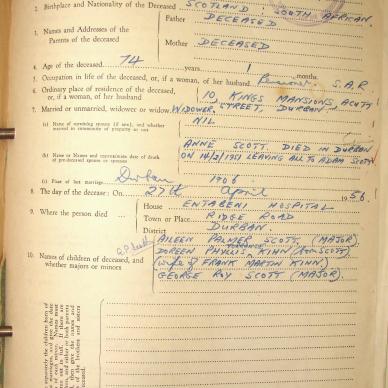 2. Birthplace and Nationality of the Deceased SCOTLAND : SOUTH AFRICAN.
Father DECEASED
3. Names and Addresses of the Parents of the deceased
Mother DECEASED
4. Age of the deceased 74 years 1 months.
5. Occupation in life of the deceased, or, if a woman, of her husband Pensioner, S.A.R
6. Ordinary place of residence of the deceased, or, if a woman, of her husband 10, KINGS MANSIONS,
7. Married or unmarried, widower or widow WIDOWER. STREET, DURBAN
(a) Name of surviving spouse (if any), and whether married in community of property or not NIL
ANNE SCOTT. DIED IN DURBAN
(b) Name or Names and approximate date of death of pre-deceased spouse or spouses ON 14/2/1951 LEAVING ALL TO ADAM SCOTT
(c) Place of last marriage Durban 1906
8. The day of the decease: On 27th April 1956.
House ENTABENI HOSPITAL
9. Where the person died Town or Place RIDGE ROAD
District DURBAN.
AILEEN PALMER SCOTT (MAJOR)
10. Names of children of deceased, and whether majors or minors DOREEN PHYLLIS KINN (born SCOTT)
(wife of FRANK MARTIN KINN)
GEORGE ROY SCOTT (MAJOR)